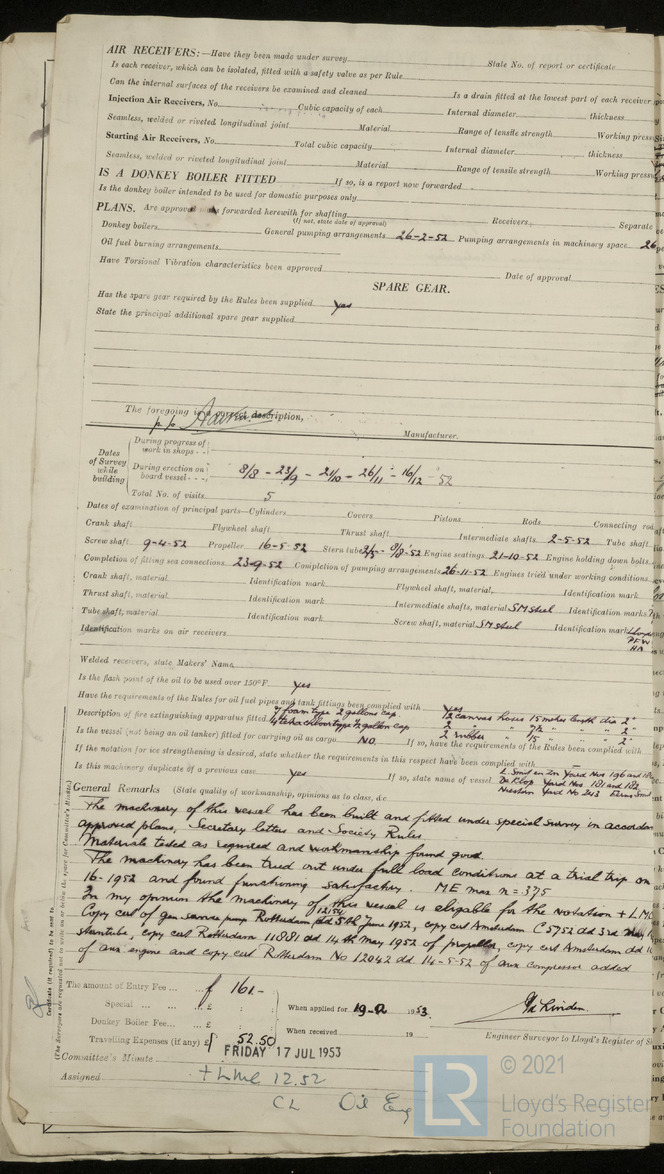 AIR RECEIVERS:—Have they been made under survey State No. of report or certificate
Is each receiver, which can be isolated, fitted with a safety valve as per Rule
Can the internal surfaces of the receivers be examined and cleaned Is a drain fitted at the lowest part of each receiver
Injection Air Receivers, No. Cubic capacity of each Internal diameter thickness
Seamless, welded or riveted longitudinal joint Material Range of tensile strength Working press
Starting Air Receivers, No. Total cubic capacity Internal diameter thickness
Seamless, welded or riveted longitudinal joint Material Range of tensile strength Working press
IS A DONKEY BOILER FITTED If so, is a report now forwarded
Is the donkey boiler intended to be used for domestic purposes only
PLANS. Are approved forwarded herewith for shafting Receivers Separate
(If not, state date of approval)
Donkey boilers General pumping arrangements 26-2-52 Pumping arrangements in machinery space 26
Oil fuel burning arrangements
Have Torsional Vibration characteristics been approved Date of approval
SPARE GEAR.
Has the spare gear required by the Rules been supplied yes
State the principal additional spare gear supplied
The foregoing is a correct description,
p p
Manufacturer.
Dates of Survey while building
During progress of work in shops - -
During erection on board vessel - - - 8/8 - 23/9 - 21/10 - 26/11 - 16/12 - 52
Total No. of visits 5
Dates of examination of principal parts—Cylinders Covers Pistons Rods Connecting rod
Crank shaft Flywheel shaft Thrust shaft Intermediate shafts 2-5-52 Tube shaft
Screw shaft 9-4-52 Propeller 16-5-52 Stern tube Engine seatings 21-10-52 Engine holding down bolts
Completion of fitting sea connections 23-9-52 Completion of pumping arrangements 26-11-52 Engines tried under working conditions
Crank shaft, material Identification mark Flywheel shaft, material, Identification mark
Thrust shaft, material Identification mark Intermediate shafts, material SM steel Identification marks
Tube shaft, material Identification mark Screw shaft, material SM steel Identification mark Lloyds
Identification marks on air receivers
Welded receivers, state Makers' Name
Is the flash point of the oil to be used over 150°F. yes
Have the requirements of the Rules for oil fuel pipes and tank fittings been complied with yes
Description of fire extinguishing apparatus fitted foam type 2 gallons cap. 12 canvas hoses 15 meters length dia 2"
Is the vessel (not being an oil tanker) fitted for carrying oil as cargo No. If so, have the requirements of the Rules been complied with
2 rubber " 15 " " 2"
If the notation for ice strengthening is desired, state whether the requirements in this respect have been complied with
Is this machinery duplicate of a previous case yes If so, state name of vessel
Yard No 243
General Remarks (State quality of workmanship, opinions as to class, &c
The machinery of this vessel has been built and fitted under special survey in accordan
approved plans, Secretary letters and Society Rules.
Materials tested as required and workmanship found good.
The machinery has been tried out under full load conditions at a trial trip on
16-1952 and found functioning satisfactory. ME max n = 375
In my opinion the machinery of this vessel is eligable for the notation + LM
Copy cert of gen service pump Rotterdam 12154 dd 5th June 1952, copy cert Amsterdam C5752 dd 3rd
sterntube, copy cert Rotterdam 11881 dd 14th May 1952 of propeller, copy cert Amsterdam dd
of aux engine and copy cert Rotterdam No 12042 dd 14-5-52 of aux compressor added
Certificate (if required) to be sent to
(The Surveyors are requested not to write on or below the space for Committee's Minute.)
The amount of Entry Fee ... £ 161.-
Special ... ... £ : :
Donkey Boiler Fee... ... £ : :
Travelling Expenses (if any) £ 52.50
When applied for 1953
When received 19
Engineer Surveyor to Lloyd's Register of S
Committee's Minute FRIDAY 17 JUL 1953
Assigned + LMC 12.52
CL Oil Eng
LR
© 2021
Lloyd's Register
Foundation